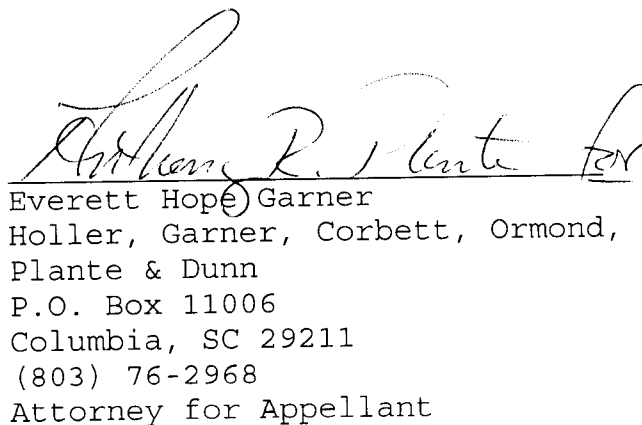 Anthony R. Plante for
Everett Hope Garner
Holler, Garner, Corbett, Ormond,
Plante & Dunn
P.O. Box 11006
Columbia, SC 29211
(803) 76-2968
Attorney for Appellant